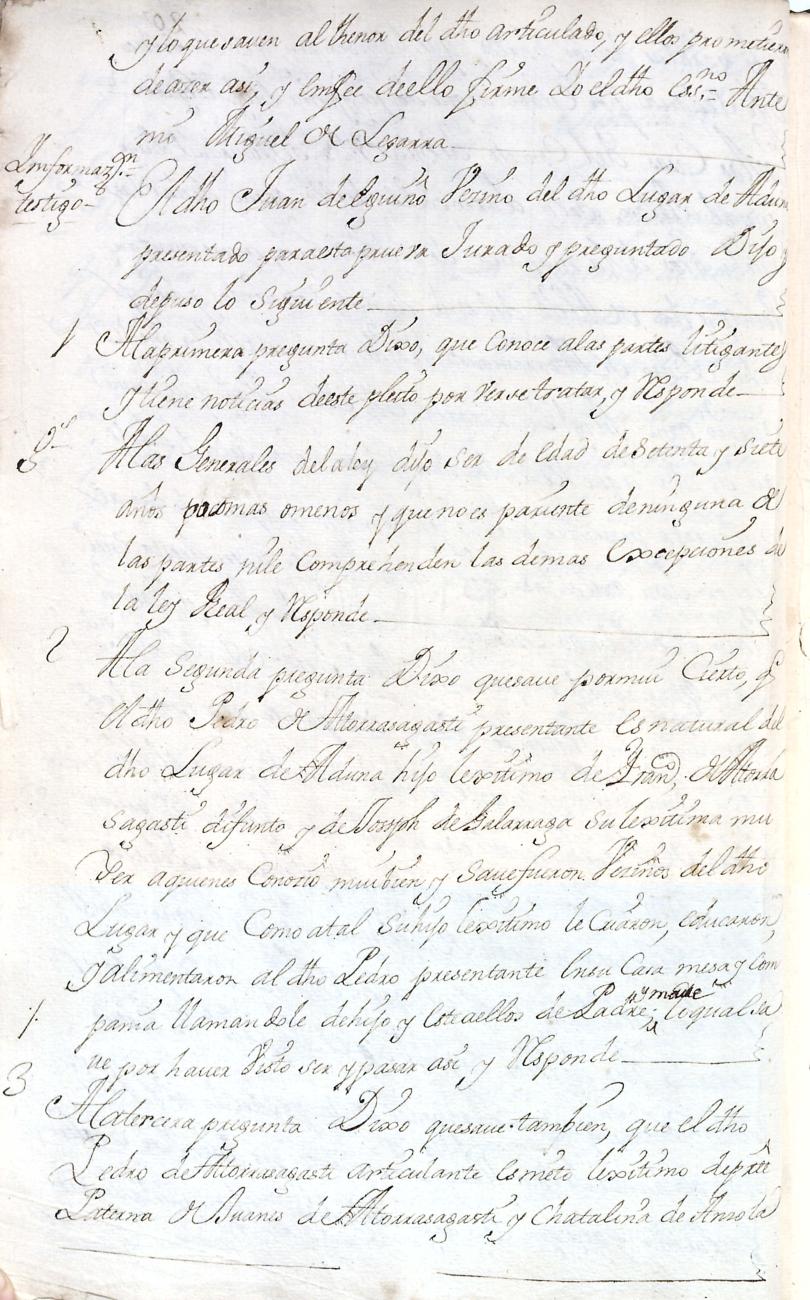 y lo que saven al thenor del dho articulado, y ellos prometieron
de azer asi, y en fee de ello firme Yo el dho Ess.no = Ante
mi Miguel de Legarra
Informaz.on
testigo
El dho Juan de Eguino Vezino del dho Lugar de Aduna
presentado para esta prueva Jurado y preguntado Dijo y
depuso lo siguiente
1 A la primera pregunta Dixo, que conoce a las partes litigantes
y tiene noticias de este pleito por verse tratar, y Responde
G.les
A las Generales de la ley dijo ser de edad de setenta y siete
años poco mas o menos y que no es pariente de ninguna de
las partes ni le comprehenden las demas excepciones de
la ley Real y Responde
2 A la segunda pregunta Dixo que save por mui cierto, q
el dho Pedro de Atorrasagasti presentante es natural del
dho Lugar de Aduna hijo lexitimo de Fran.co de Atorra
sagasti difunto y de Joseph de Galarraga su lexitima mu
ger a quienes conozio mui bien y save fueron Vezinos del dho
Lugar y que como a tal su hijo lexitimo le criaron, educaron,
y alimentaron al dho Pedro presentante en su casa mesa y com
pania llamandole de hijo y este a ellos de Padre, y madre lo qual sa
ve por haver visto ser y pasar asi, y Responde
3 A la tercera pregunta Dixo que save tambien, que el dho
Pedro de Atorrasagasti articulante es nieto lexitimo de p.te
Paterna de Juanes de Atorrasagasti y Chatalina de Ansola